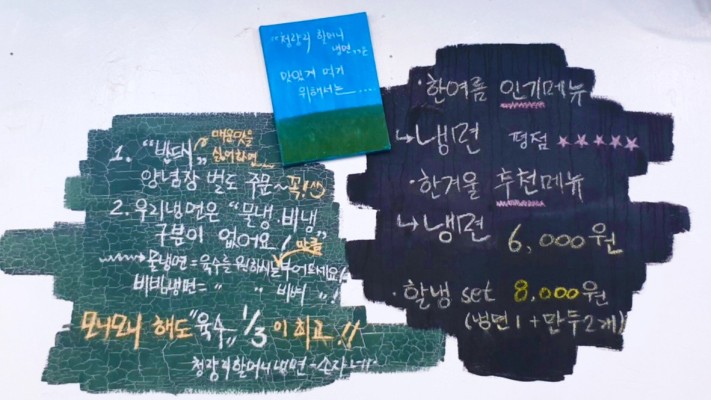 "청량리 할머니
냉면"을
맛있게 먹기
위해서는....
1. "반드시" 매운맛을
싫어하면
양념장 별도 주문~ 꼭!
2. 우리냉면은 "물냉·비냉"
구분이 없어요!
물냉면=육수를 원하시는 부어드세요!
비빔냉면= " " 비벼 " !
모니모니 해도 "육수" 1/3 이 최고!!
청량리할머니냉면-손자
·한여름 인기메뉴
→냉면 평점 ★★★★★
·한겨울 추천메뉴
→냉면
6,000원
·할냉 set 8,000원
(냉면1+만두2개)